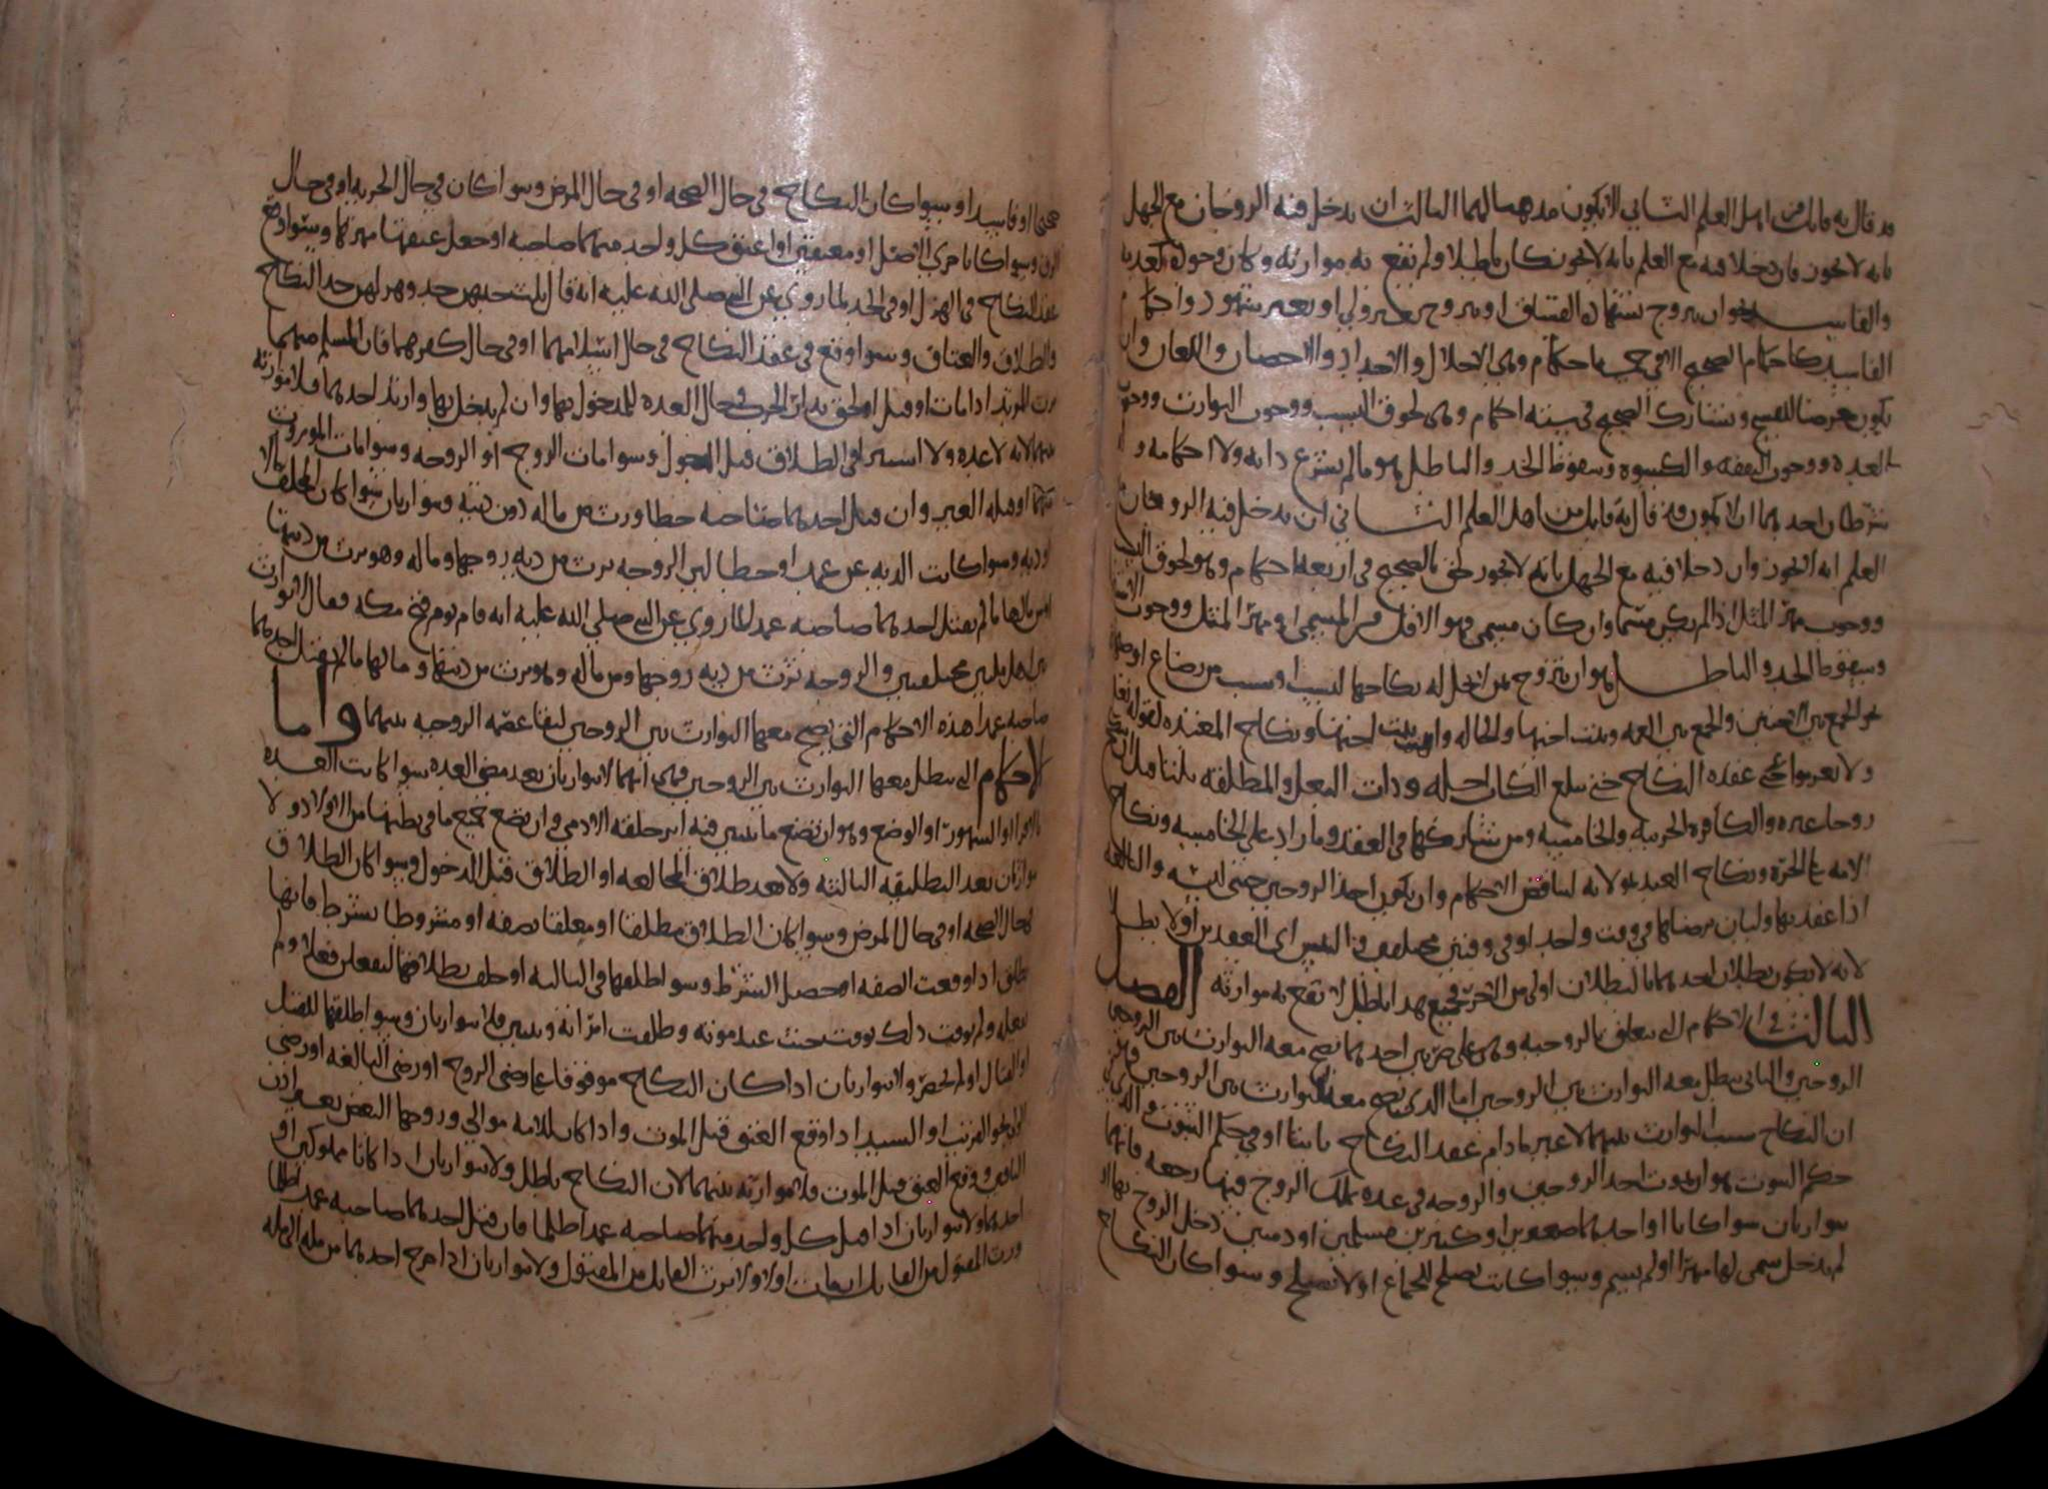 قد قال به قايل من اهل العلم الثاني الا يكون مذهبا لهما الثالث ان يدخل فيه الزوجان مع الجهل
بانه لا يجوز فان دخلا فيه مع العلم بانه لا يجوز كان باطلا ولم تقع به موارثه وكان وجوده كعدمه
والفاسد نحو ان يتزوج بشهادة الفساق او يتزوج بغير ولي او بغير شهود واحكام
الفاسد كاحكام الصحيح الا في احكام وهي الاحلال والاحداد والاحصان واللعان وان
يكون معرضا للفسخ ويشارك الصحيح في سته احكام وهي لحوق النسب ووجوب التوارث ووجوب
العده ووجوب النفقه والكسوه وسقوط الحد والباطل هو ما لم يشرع ذاته ولا احكامه و
شرطان احدهما ان لا يكون قد قال به قايل من اهل العلم الثاني ان يدخل فيه الزوجان
العلم انه لا يجوز وان دخلا فيه مع الجهل بانه لا يجوز لحق بالصحيح في اربعه احكام وهو لحوق النسب
ووجوب مهر المثل اذا لم يكن مسما وان كان مسمى فهو الاقل من المسمى او مهر المثل ووجوب
وسقوط الحد والباطل هو ان يتزوج من لا تحل له نكاحها لنسب او سبب من رضاع او
نحو الجمع بين الاختين والجمع بين العمه وبنت اخيها والخاله وبنت اختها ونكاح المعتده لقوله تعالى
ولا تعزموا عقده النكاح حتى يبلغ الكتاب اجله وذات البعل والمطلقه ثلثا قبل ان
زوجا غيره والكافره الحربيه والخامسه ومن شاركها في العقد وما زاد على الخامسه ونكاح
الامه على الحره ونكاح العبد مولاته لتناقض الاحكام وان يكون احد الزوجين خنثى لبسه
اذا عقد بها وليان برضاهما في وقت واحد او في وقتين مختلفين والتبس اي العقدين اولا بطل
لانه لا يكون بطلان احدهما بالبطلان اولى من الاخر فجميع هذا باطل لا تقع به موارثه الفصل
الثالث في الاحكام التي تتعلق بالزوجيه وهي على ضربين احدهما تصح معه التوارث بين
الزوجين والثاني يبطل معه التوارث بين الزوجين اما الذي تصح معه التوارث بين الزوجين
ان النكاح سبب التوارث بينهما لا غير ما دام عقد النكاح ثابتا او في حكم الثبوت
حكم الثبوت هو ان يموت احد الزوجين والزوجه في عده يملك الزوج فيها رجعه فانهما
يتوارثان سوا كانا او احدهما صغيرين او كبيرين مسلمين او ذميين دخل الزوج بها او
لم يدخل سمى لها مهرا او لم يسم وسوا كانت تصلح للجماع او لا تصلح وسوا كان النكاح
صحيحا او فاسدا وسوا كان النكاح في حال الصحه او في حال المرض وسوا كان في حال الحريه او في حال
الرق وسوا كانا حري الاصل او معتقين او اعتق كل واحد منهما صاحبه او جعل عتقها مهرها وسوا وقع
عقد النكاح في الهزل او في الجد لما روي عن النبي صلى الله عليه انه قال ثلث جدهن جد وهزلهن جد النكاح
والطلاق والعتاق وسوا وقع في عقد النكاح في حال اسلامهما او في حال كفرهما فان المسلم منهما
يرث المرتد اذا مات او قتل او لحق بدار الحرب في حال العده للمدخول بها وان لم يدخل بها وارتد احدهما فلا موارثه
بينهما لانه لا عده ولا استبرا في الطلاق قبل الدخول وسوا مات الزوج او الزوجه
منهما او قتله الغير وان قتل احدهما صاحبه خطا ورث من ماله دون ديته
وسوا كانت الديه عن عمد او خطا لان الزوجه ترث من ديه زوجها وماله وهو يرث من ديتها
ومالها ما لم يقتل احدهما صاحبه عمدا لما روي عن النبي صلى الله عليه انه قام يوم فتح مكه فقال لا توارث
بين اهل ملتين مختلفتين والزوجه ترث من ديه زوجها ومن ماله وهو يرث من ديتها ومالها ما لم يقتل احدهما
صاحبه عمدا هذه الاحكام التي تصح معها التوارث بين الزوجين لبقا عصمه الزوجيه بينهما واما
الاحكام التي يبطل معها التوارث بين الزوجين فهي انهما لا يتوارثان بعد مضي العده سوا كانت العده
بالاقرا او الشهور او الوضع وهو ان تضع ما يتبين فيه اثر خلقه الادمي وان تضع جميع ما في بطنها من الاولاد ولا
يتوارثان بعد التطليقه الثالثه ولا بعد طلاق المخالعه او الطلاق قبل الدخول وسوا كان الطلاق
في حال الصحه او في حال المرض وسوا كان الطلاق مطلقا او معلقا بصفه او مشروطا بشرط فانها
تطلق اذا وقعت الصفه او حصل الشرط وسوا طلقها في الثالثه او حلف بطلاقها ليفعلن فعلا ولم
يفعله ولم يوقت ذلك بوقت حنث عند موته وطلقت امراته وتبين فلا يتوارثان وسوا طلقها للقتل
او القتال او لم يحضر ولا يتوارثان اذا كان النكاح موقوفا على رضى الزوج او رضى البالغه او رضى
الولي القريب او السيد اذا وقع العتق قبل الموت واذا كان للامه موالي وزوجها البعض بغير اذن
الباقين ووقع العتق قبل الموت فلا موارثه بينهما لان النكاح باطل ولا يتوارثان اذا كانا مملوكين او
احدهما ولا يتوارثان اذا قتل كل واحد منهما صاحبه عمدا ظلما فان قتل احدهما صاحبه عمدا ظلما
ورث المقتول من القاتل ان مات اولا ولا يرث القاتل من المقتول ولا يتوارثان اذا خرج احدهما من مله الى مله